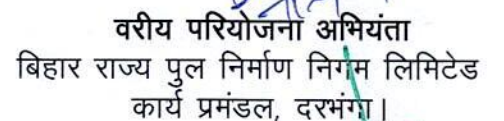 वरीय परियोजना अभियंता
बिहार राज्य पुल निर्माण निगम लिमिटेड
कार्य प्रमंडल, दरभंगा।